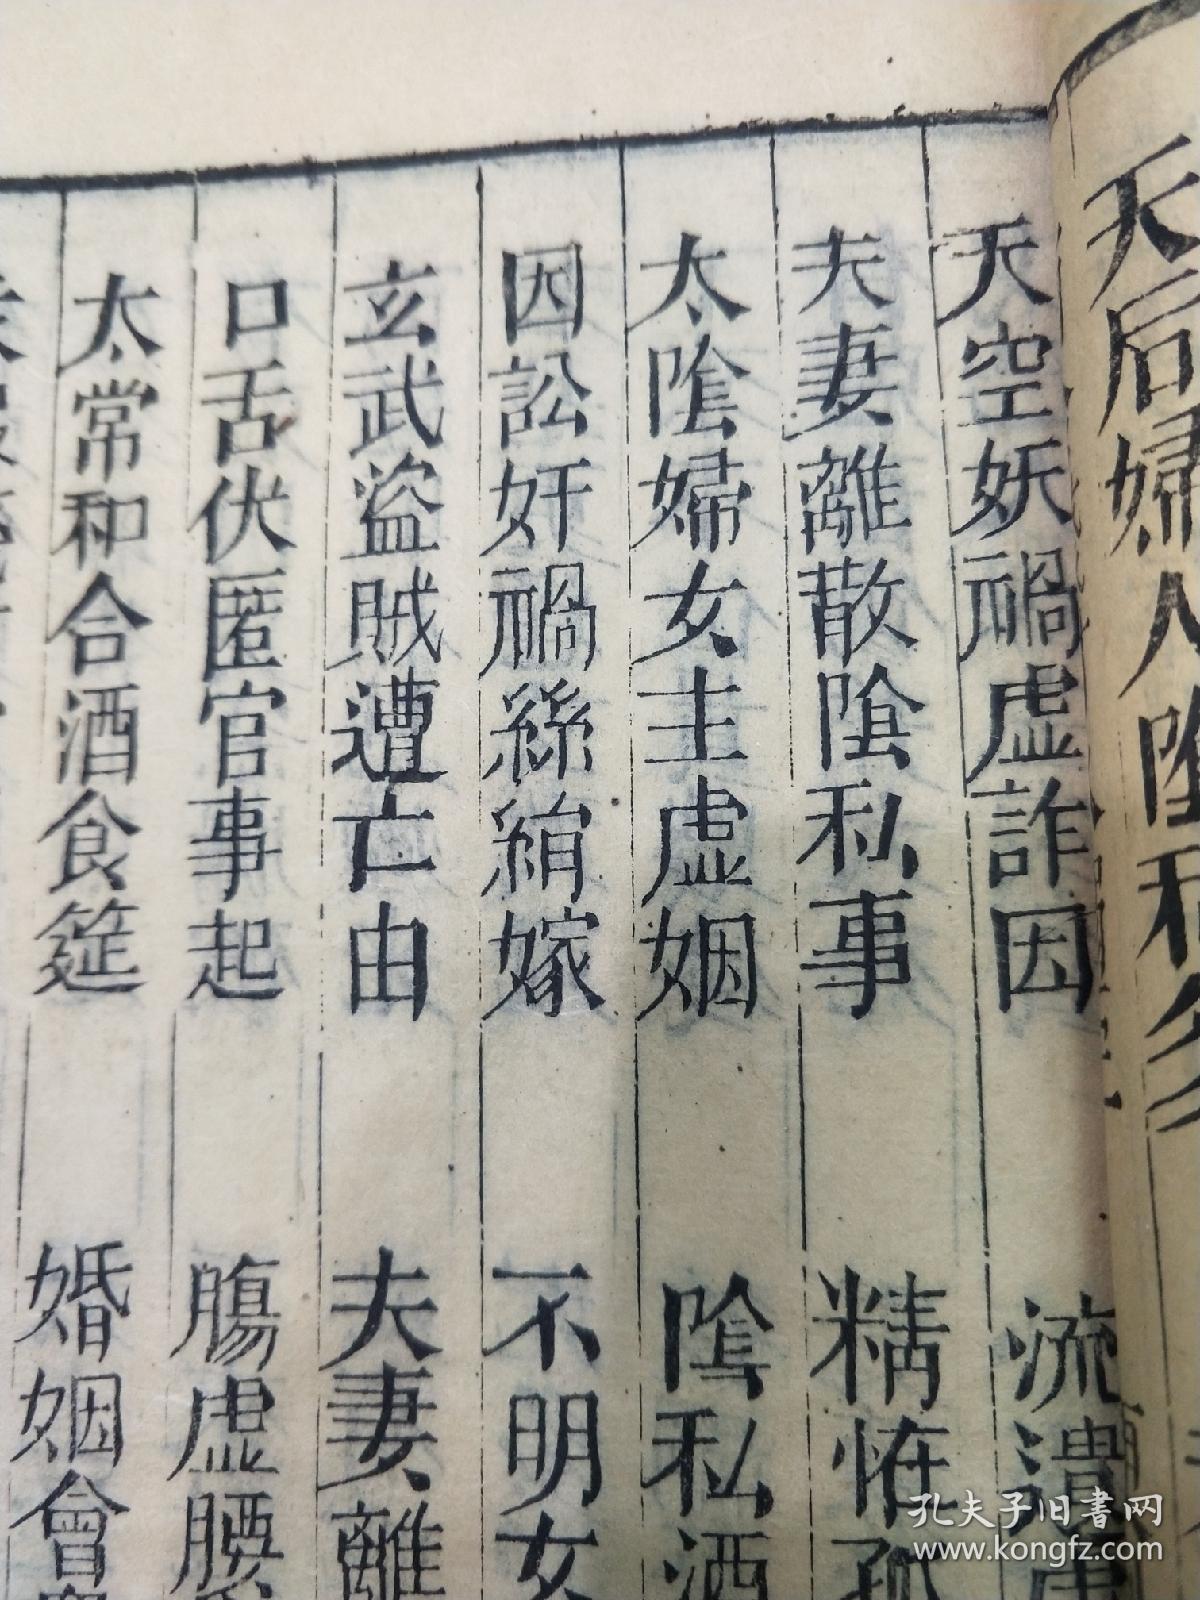 天后婦人陰私
天空妖禍虛詐因
流潰
夫妻離散陰私事
精怪孤
太陰婦女主虛姻
陰私酒
因訟奸禍絲絹嫁
不明女
玄武盜賊遭亡由
夫妻離
口舌伏匿官事起
腸虛腰
太常和合酒食筵
婚姻會
孔夫子旧书网
www.kongfz.com